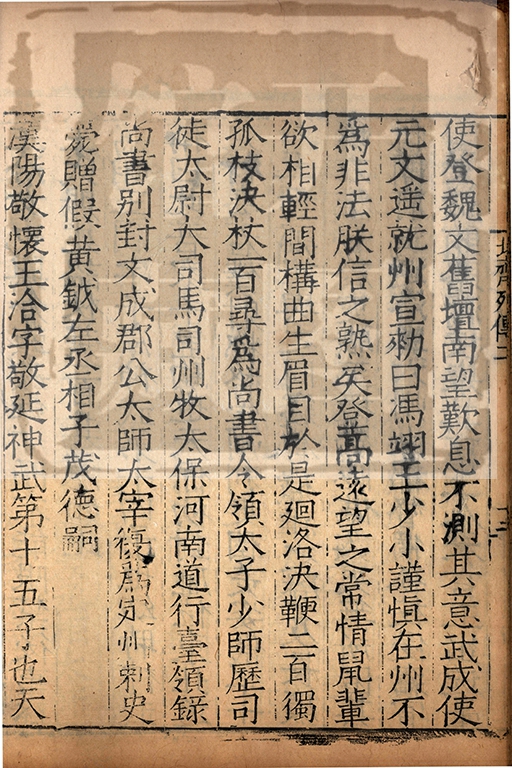 使登魏文舊壇南望歎息不測其意武成使
元文遥就州宣勑曰馮翊王少小謹慎在州不
爲非法朕信之熟矣登高遠望之常情鼠輩
欲相輕間構曲生眉目於是廻洛決鞭二百獨
孤枝決杖一百尋爲尚書令領太子少師歷司
徒太尉大司馬司州牧太保河南道行臺領錄
尚書别封文成郡公太師太宰復爲定州刺史
薨贈假黄鉞左丞相子茂德嗣
漢陽敬懷王洽字敬延神武第十五子也天
北齊列傳二